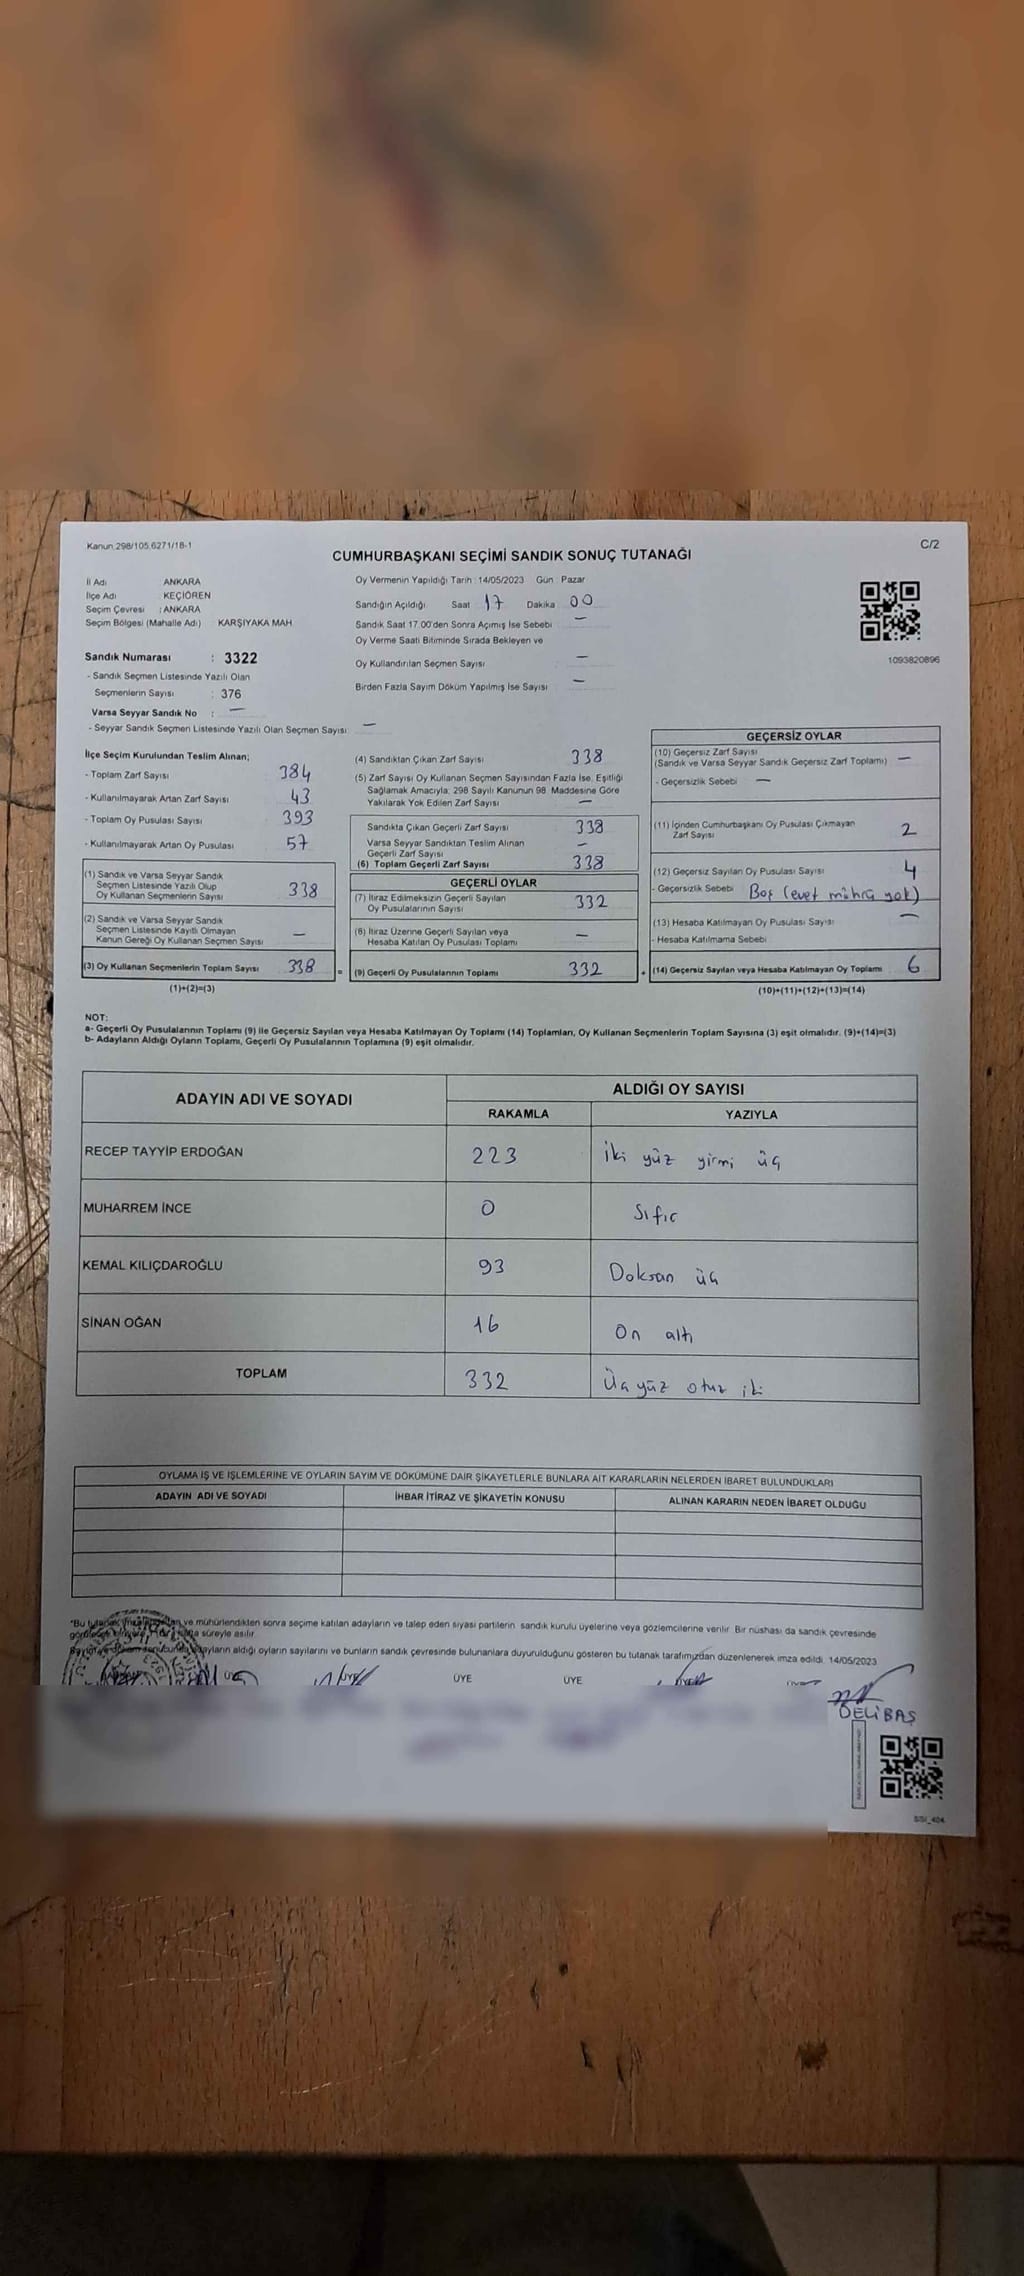 Kanun 298/105,6271/18-1
C/2
CUMHURBAŞKANI SEÇİMİ SANDIK SONUÇ TUTANAĞI
İl Adı ANKARA
İlçe Adı KEÇİÖREN
Seçim Çevresi : ANKARA
Seçim Bölgesi (Mahalle Adı) KARŞIYAKA MAH.
Oy Vermenin Yapıldığı Tarih : 14/05/2023 Gün : Pazar
Sandığın Açıldığı Saat 17 Dakika 00
Sandık Saat 17.00'den Sonra Açımış İse Sebebi —
Oy Verme Saati Bitiminde Sırada Bekleyen ve
Oy Kullandırılan Seçmen Sayısı —
Birden Fazla Sayım Döküm Yapılmış İse Sayısı —
1093820896
Sandık Numarası : 3322
- Sandık Seçmen Listesinde Yazılı Olan
Seçmenlerin Sayısı : 376
Varsa Seyyar Sandık No : —
- Seyyar Sandık Seçmen Listesinde Yazılı Olan Seçmen Sayısı —
İlçe Seçim Kurulundan Teslim Alınan;
- Toplam Zarf Sayısı 384
- Kullanılmayarak Artan Zarf Sayısı 43
- Toplam Oy Pusulası Sayısı 393
- Kullanılmayarak Artan Oy Pusulası 57
(1) Sandık ve Varsa Seyyar Sandık
Seçmen Listesinde Yazılı Olup
Oy Kullanan Seçmenlerin Sayısı 338
(2) Sandık ve Varsa Seyyar Sandık
Seçmen Listesinde Kayıtlı Olmayan
Kanun Gereği Oy Kullanan Seçmen Sayısı —
(3) Oy Kullanan Seçmenlerin Toplam Sayısı 338
(1)+(2)=(3)
(4) Sandıktan Çıkan Zarf Sayısı 338
(5) Zarf Sayısı Oy Kullanan Seçmen Sayısından Fazla İse, Eşitliği
Sağlamak Amacıyla; 298 Sayılı Kanunun 98. Maddesine Göre
Yakılarak Yok Edilen Zarf Sayısı —
Sandıkta Çıkan Geçerli Zarf Sayısı 338
Varsa Seyyar Sandıktan Teslim Alınan
Geçerli Zarf Sayısı —
(6) Toplam Geçerli Zarf Sayısı 338
GEÇERLİ OYLAR
(7) İtiraz Edilmeksizin Geçerli Sayılan
Oy Pusulalarının Sayısı 332
(8) İtiraz Üzerine Geçerli Sayılan veya
Hesaba Katılan Oy Pusulası Toplamı —
= (9) Geçerli Oy Pusulalarının Toplamı 332
GEÇERSİZ OYLAR
(10) Geçersiz Zarf Sayısı
(Sandık ve Varsa Seyyar Sandık Geçersiz Zarf Toplamı) —
- Geçersizlik Sebebi —
(11) İçinden Cumhurbaşkanı Oy Pusulası Çıkmayan
Zarf Sayısı 2
(12) Geçersiz Sayılan Oy Pusulası Sayısı 4
- Geçersizlik Sebebi Boş (evet mührü yok)
(13) Hesaba Katılmayan Oy Pusulası Sayısı —
- Hesaba Katılmama Sebebi
+ (14) Geçersiz Sayılan veya Hesaba Katılmayan Oy Toplamı 6
(10)+(11)+(12)+(13)=(14)
NOT:
a- Geçerli Oy Pusulalarının Toplamı (9) ile Geçersiz Sayılan veya Hesaba Katılmayan Oy Toplamı (14) Toplamları, Oy Kullanan Seçmenlerin Toplam Sayısına (3) eşit olmalıdır. (9)+(14)=(3)
b- Adayların Aldığı Oyların Toplamı, Geçerli Oy Pusulalarının Toplamına (9) eşit olmalıdır.
ADAYIN ADI VE SOYADI ALDIĞI OY SAYISI
RAKAMLA YAZIYLA
RECEP TAYYİP ERDOĞAN 223 İki yüz yirmi üç
MUHARREM İNCE 0 Sıfır
KEMAL KILIÇDAROĞLU 93 Doksan üç
SİNAN OĞAN 16 On altı
TOPLAM 332 Üç yüz otuz iki
OYLAMA İŞ VE İŞLEMLERİNE VE OYLARIN SAYIM VE DÖKÜMÜNE DAİR ŞİKAYETLERLE BUNLARA AİT KARARLARIN NELERDEN İBARET BULUNDUKLARI
ADAYIN ADI VE SOYADI İHBAR İTİRAZ VE ŞİKAYETİN KONUSU ALINAN KARARIN NEDEN İBARET OLDUĞU
*Bu ve mühürlendikten sonra seçime katılan adayların ve talep eden siyasi partilerin sandık kurulu üyelerine veya gözlemcilerine verilir. Bir nüshası da sandık çevresinde
süreyle asılır.
adayların aldığı oyların sayılarını ve bunların sandık çevresinde bulunanlara duyurulduğunu gösteren bu tutanak tarafımızdan düzenlenerek imza edildi. 14/05/2023
ÜYE ÜYE ÜYE ÜYE ÜYE
DELİBAŞ